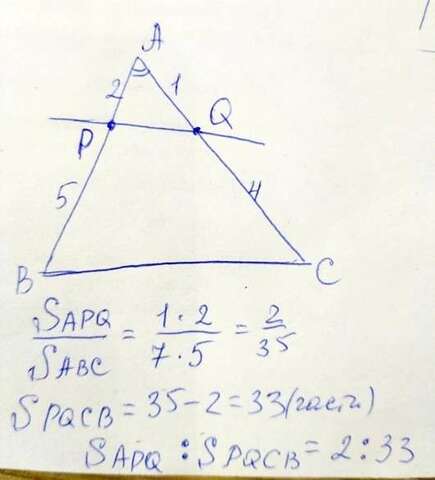 A
2 1
P Q
5 4
B C
S_APQ / S_ABC = 1·2 / 7·5 = 2/35
S_PQCB = 35-2=33(части)
S_APQ : S_PQCB = 2:33